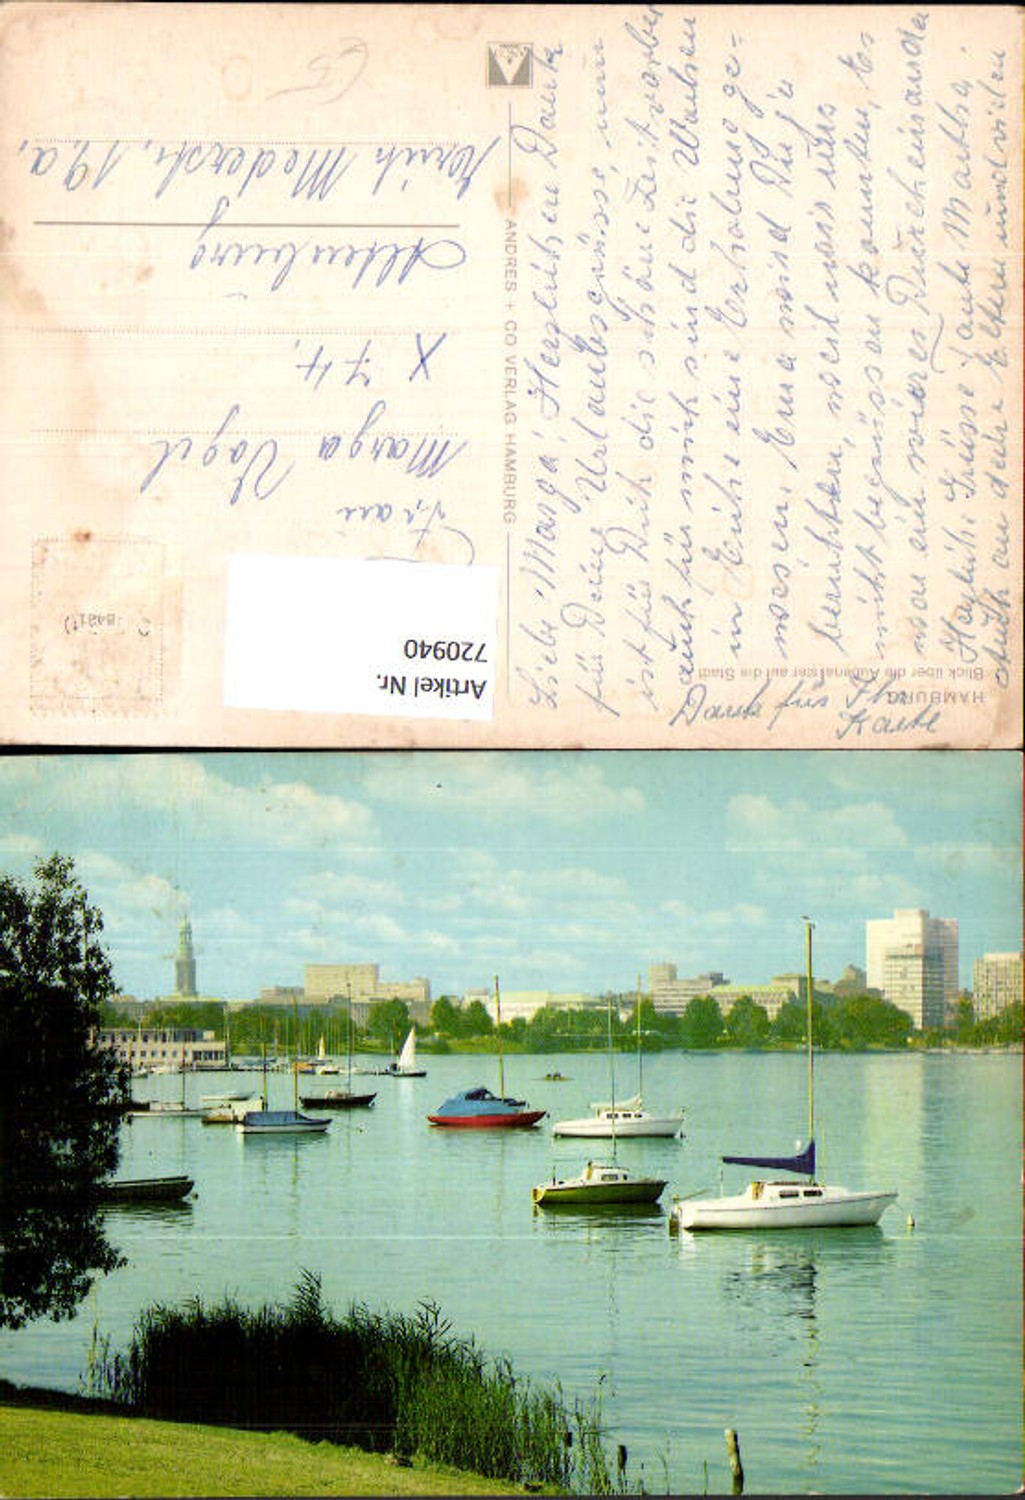 HAMBURG
Blick über die Außenalster auf die Stadt
Liebe Marga! Herzlichen Dank
für Deine Urlaubsgrüsse, nun
ist für Dich die schöne Zeit vorbei
auch für mich sind die Wochen
in Eurhe eine Erholung ge-
wesen, Erna wird Dir ja
berichten, weil wir uns
nicht begrüssen konnten, Es
war ein Durcheinander
Herzliche Grüsse Tante Martha,
auch an deine Eltern
Dank für Ihre
Karte
ANDRES + CO VERLAG HAMBURG
Frau
Marga Vogel
X 74,
Altenburg
Erich Mäderstr. 19,a,
8481
Artikel Nr.
720940